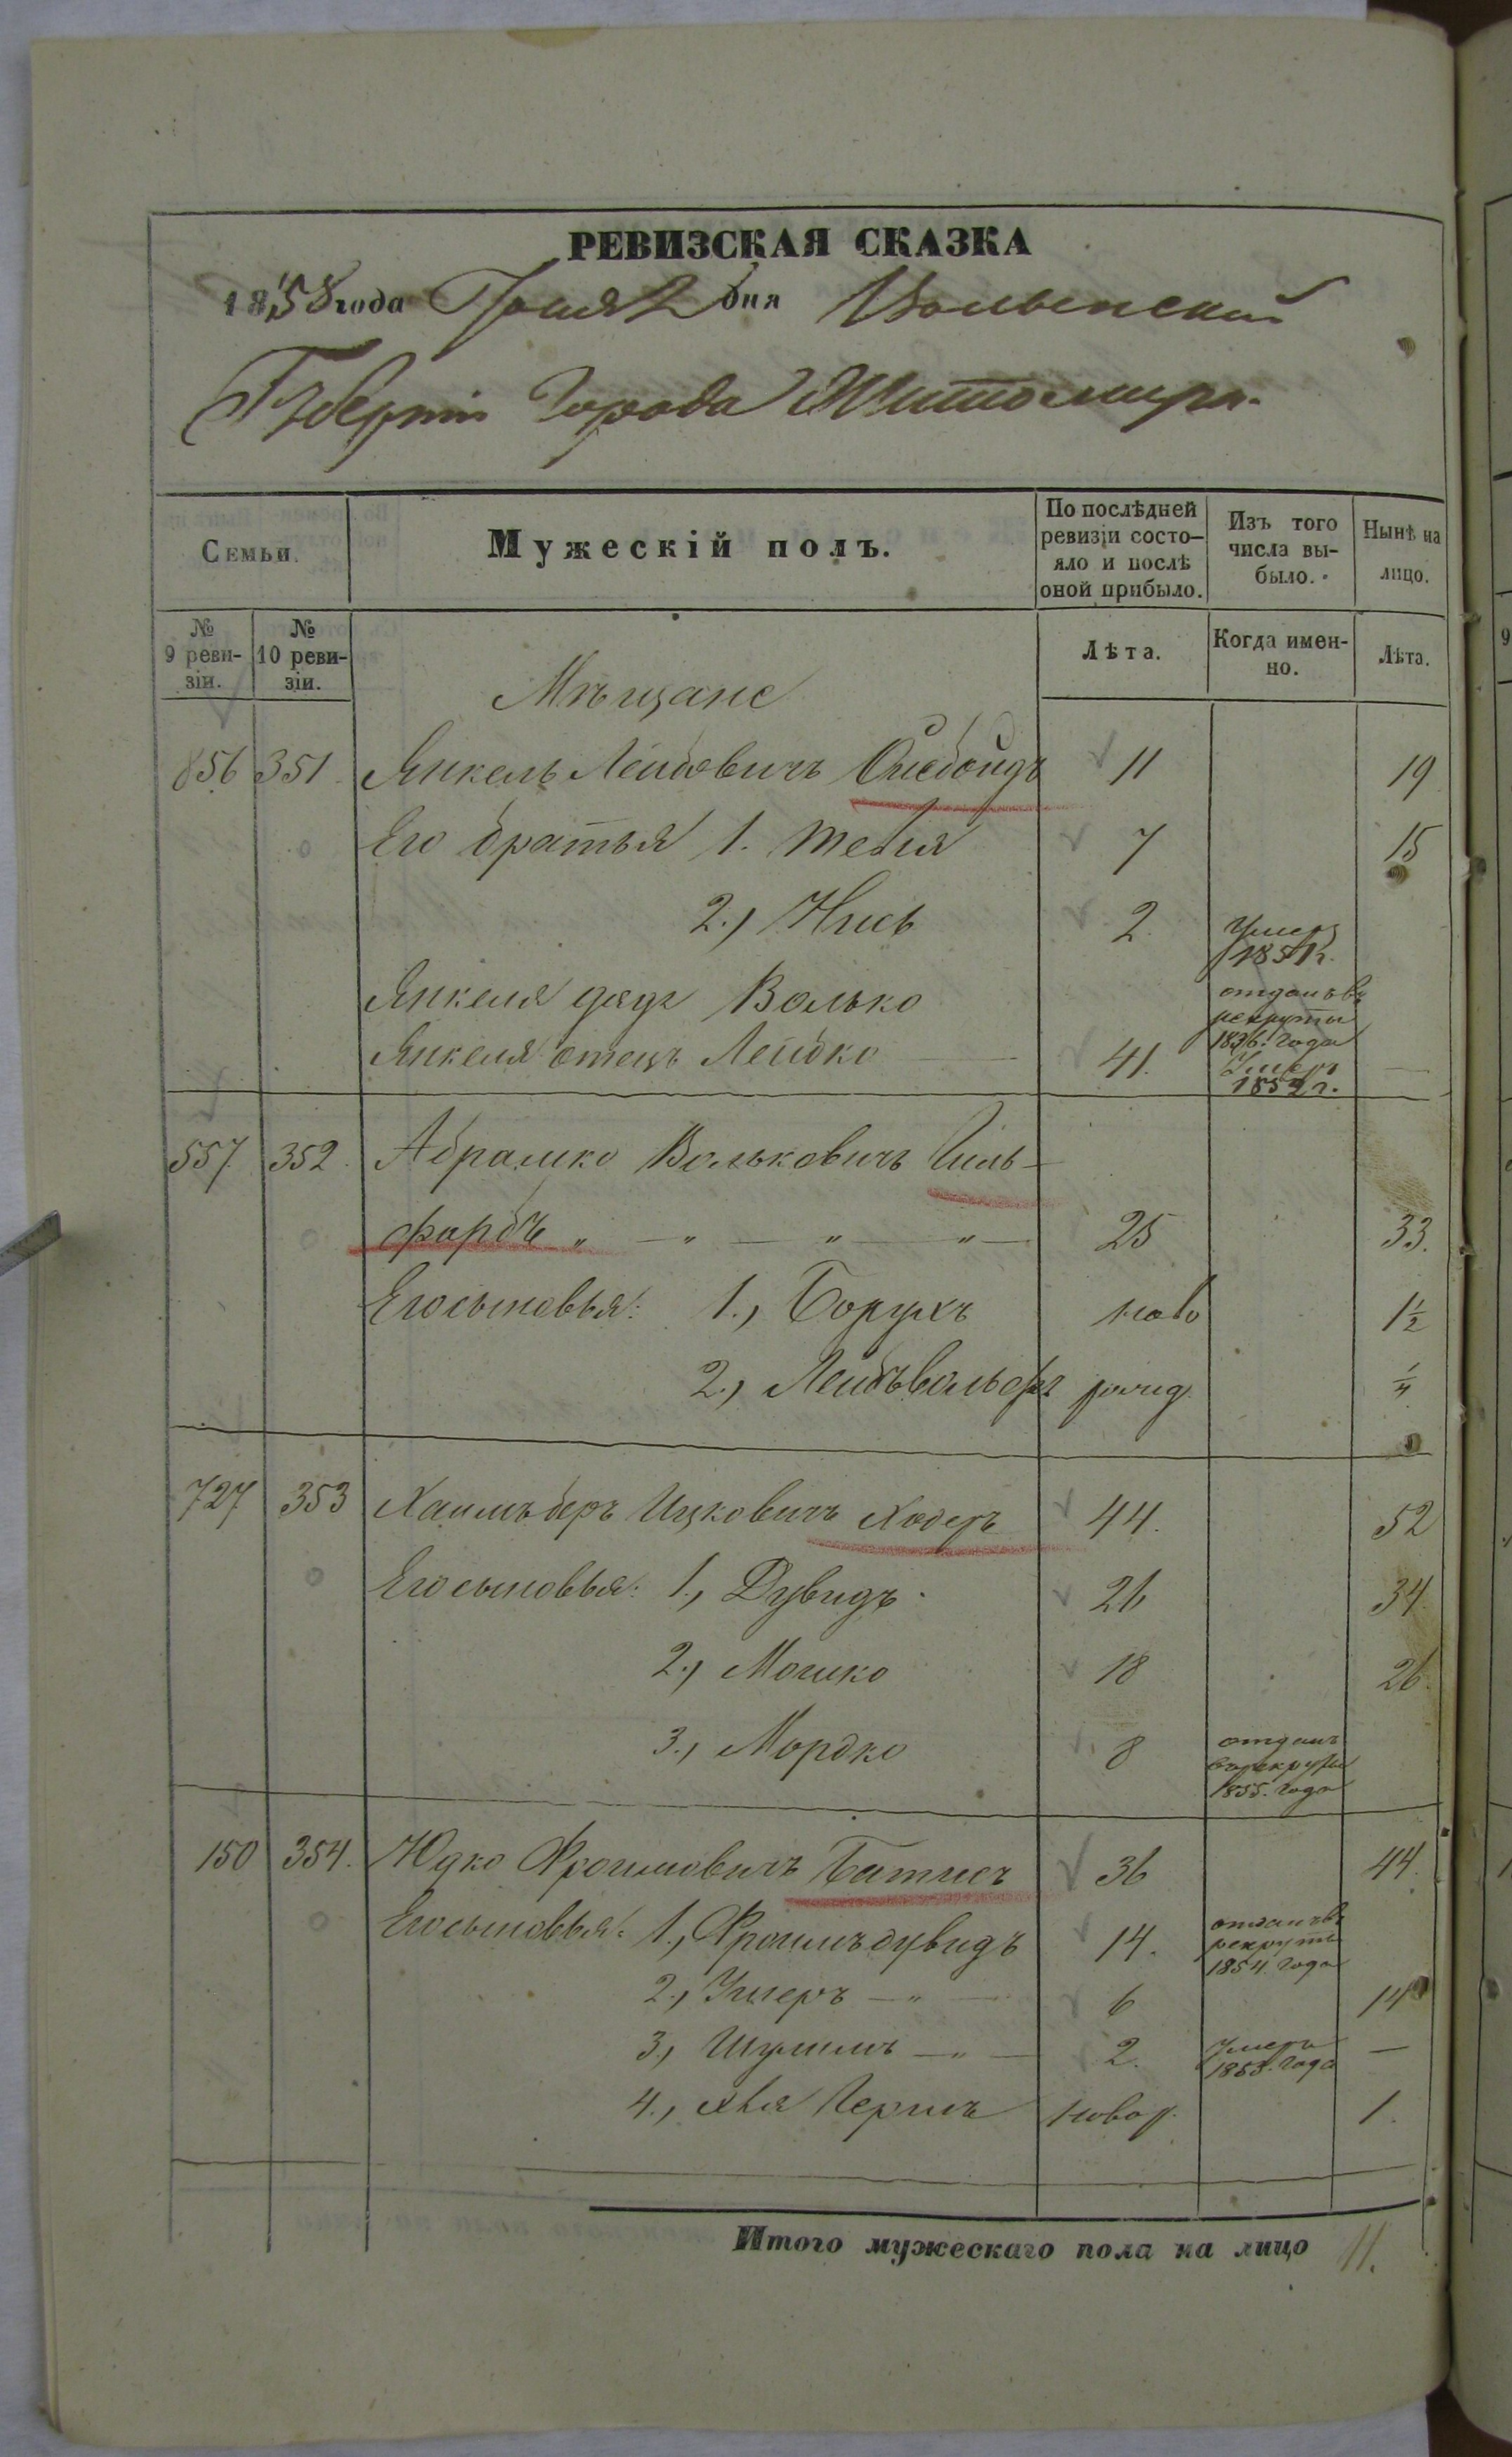 РЕВИЗСКАЯ СКАЗКА
1858 года Іюня 2 дня Волынской
Губерніи Города Житомира.
Семьи.
Мужескій полъ.
По послѣдней ревизіи состо-яло и послѣ оной прибыло.
Изъ того числа вы-было.
Нынѣ на лицо.
№ 9 реви-зіи.
№ 10 реви-зіи.
Лѣта.
Когда имен-но.
Лѣта.
Мѣщане
856 351 Янкель Лейбовичъ 11 19
Его братья 1. 7 15
2., Нись 2. Умеръ 1851 г.
Янкеля дядя Волько отданъ въ рекруты 1836. года
Янкеля отецъ Лейбко — 41. Умеръ 1852 г. —
557. 352. Абрамко Вольковичъ Гиль-
фарбъ „ — „ — „ „ — 25 33.
Его сыновья: 1., Борухъ ново 1½
2., Лейбъвольфъ рожд. ¼
727 353 Хаимъ беръ Ицковичъ Ходеръ 44. 52
Его сыновья: 1., Дувидъ 26 34
2., Мошко 18 26.
3., Мордко 8 отданъ в рекруты 1855. года
150 354. Юдко Фроимовичъ 36 44.
Его сыновья: 1., Фроимъ дувидъ 14. отданъ въ рекруты 1854. года
2., Ушеръ — „ — 6 14
3., Шулимъ — „ — 2. Умеръ 1853. года —
4., новор. 1.
Итого мужескаго пола на лицо 11.